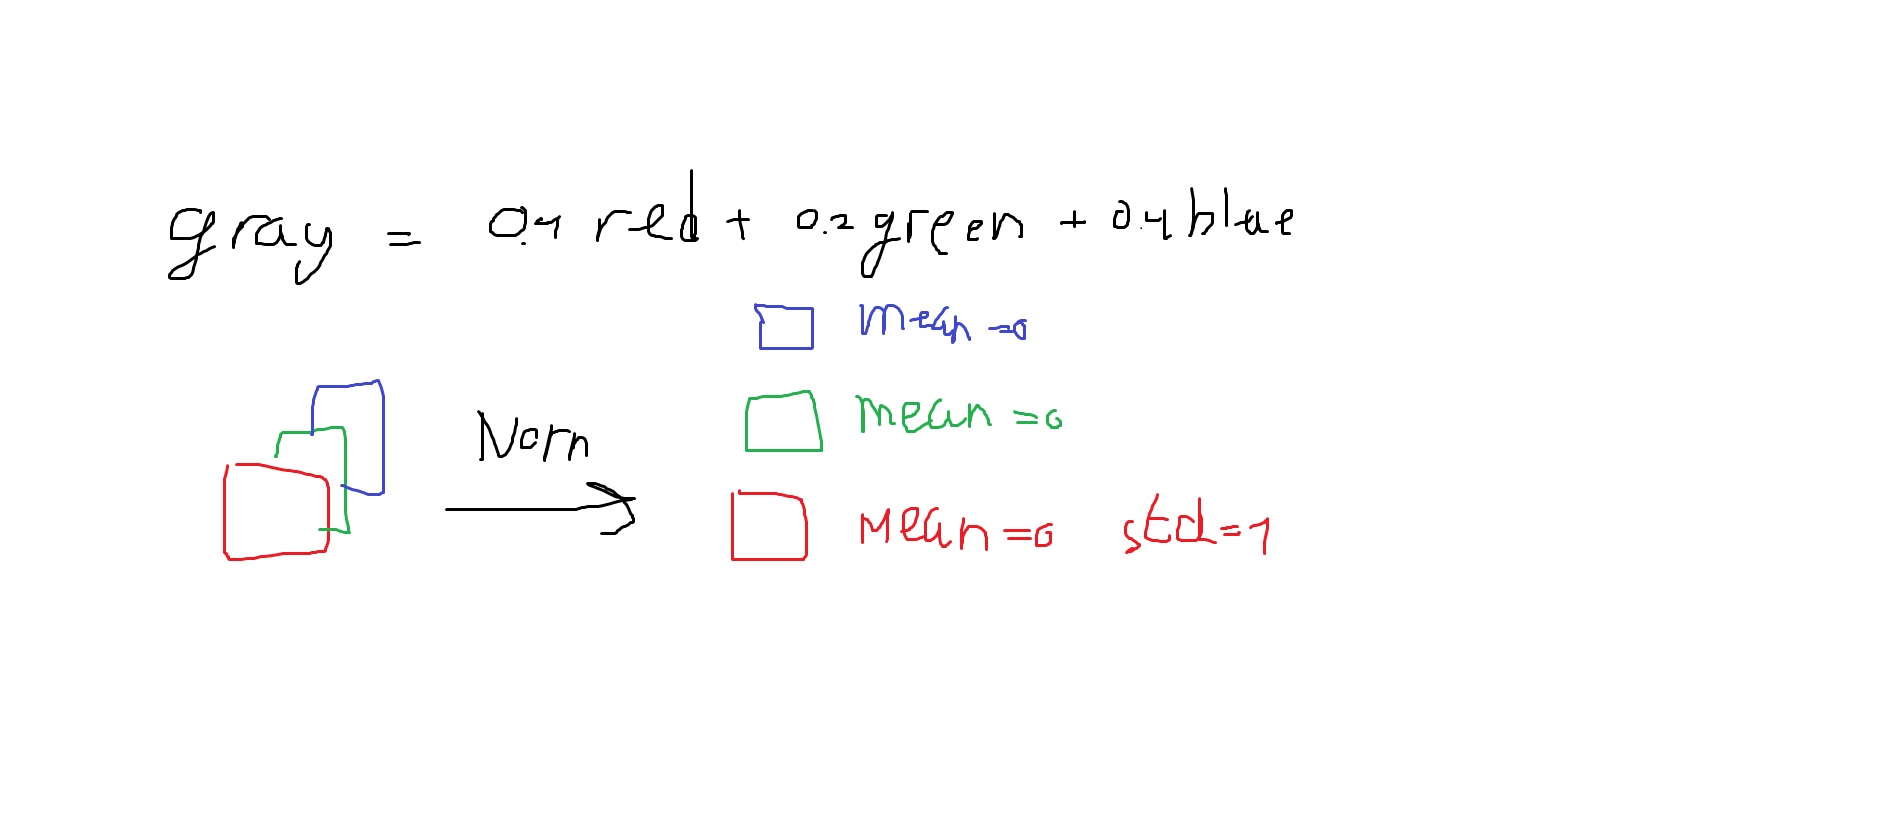 gray = 0.4 red + 0.2 green + 0.4 blue
mean =0
Norm
mean =0
Mean =0 std=1